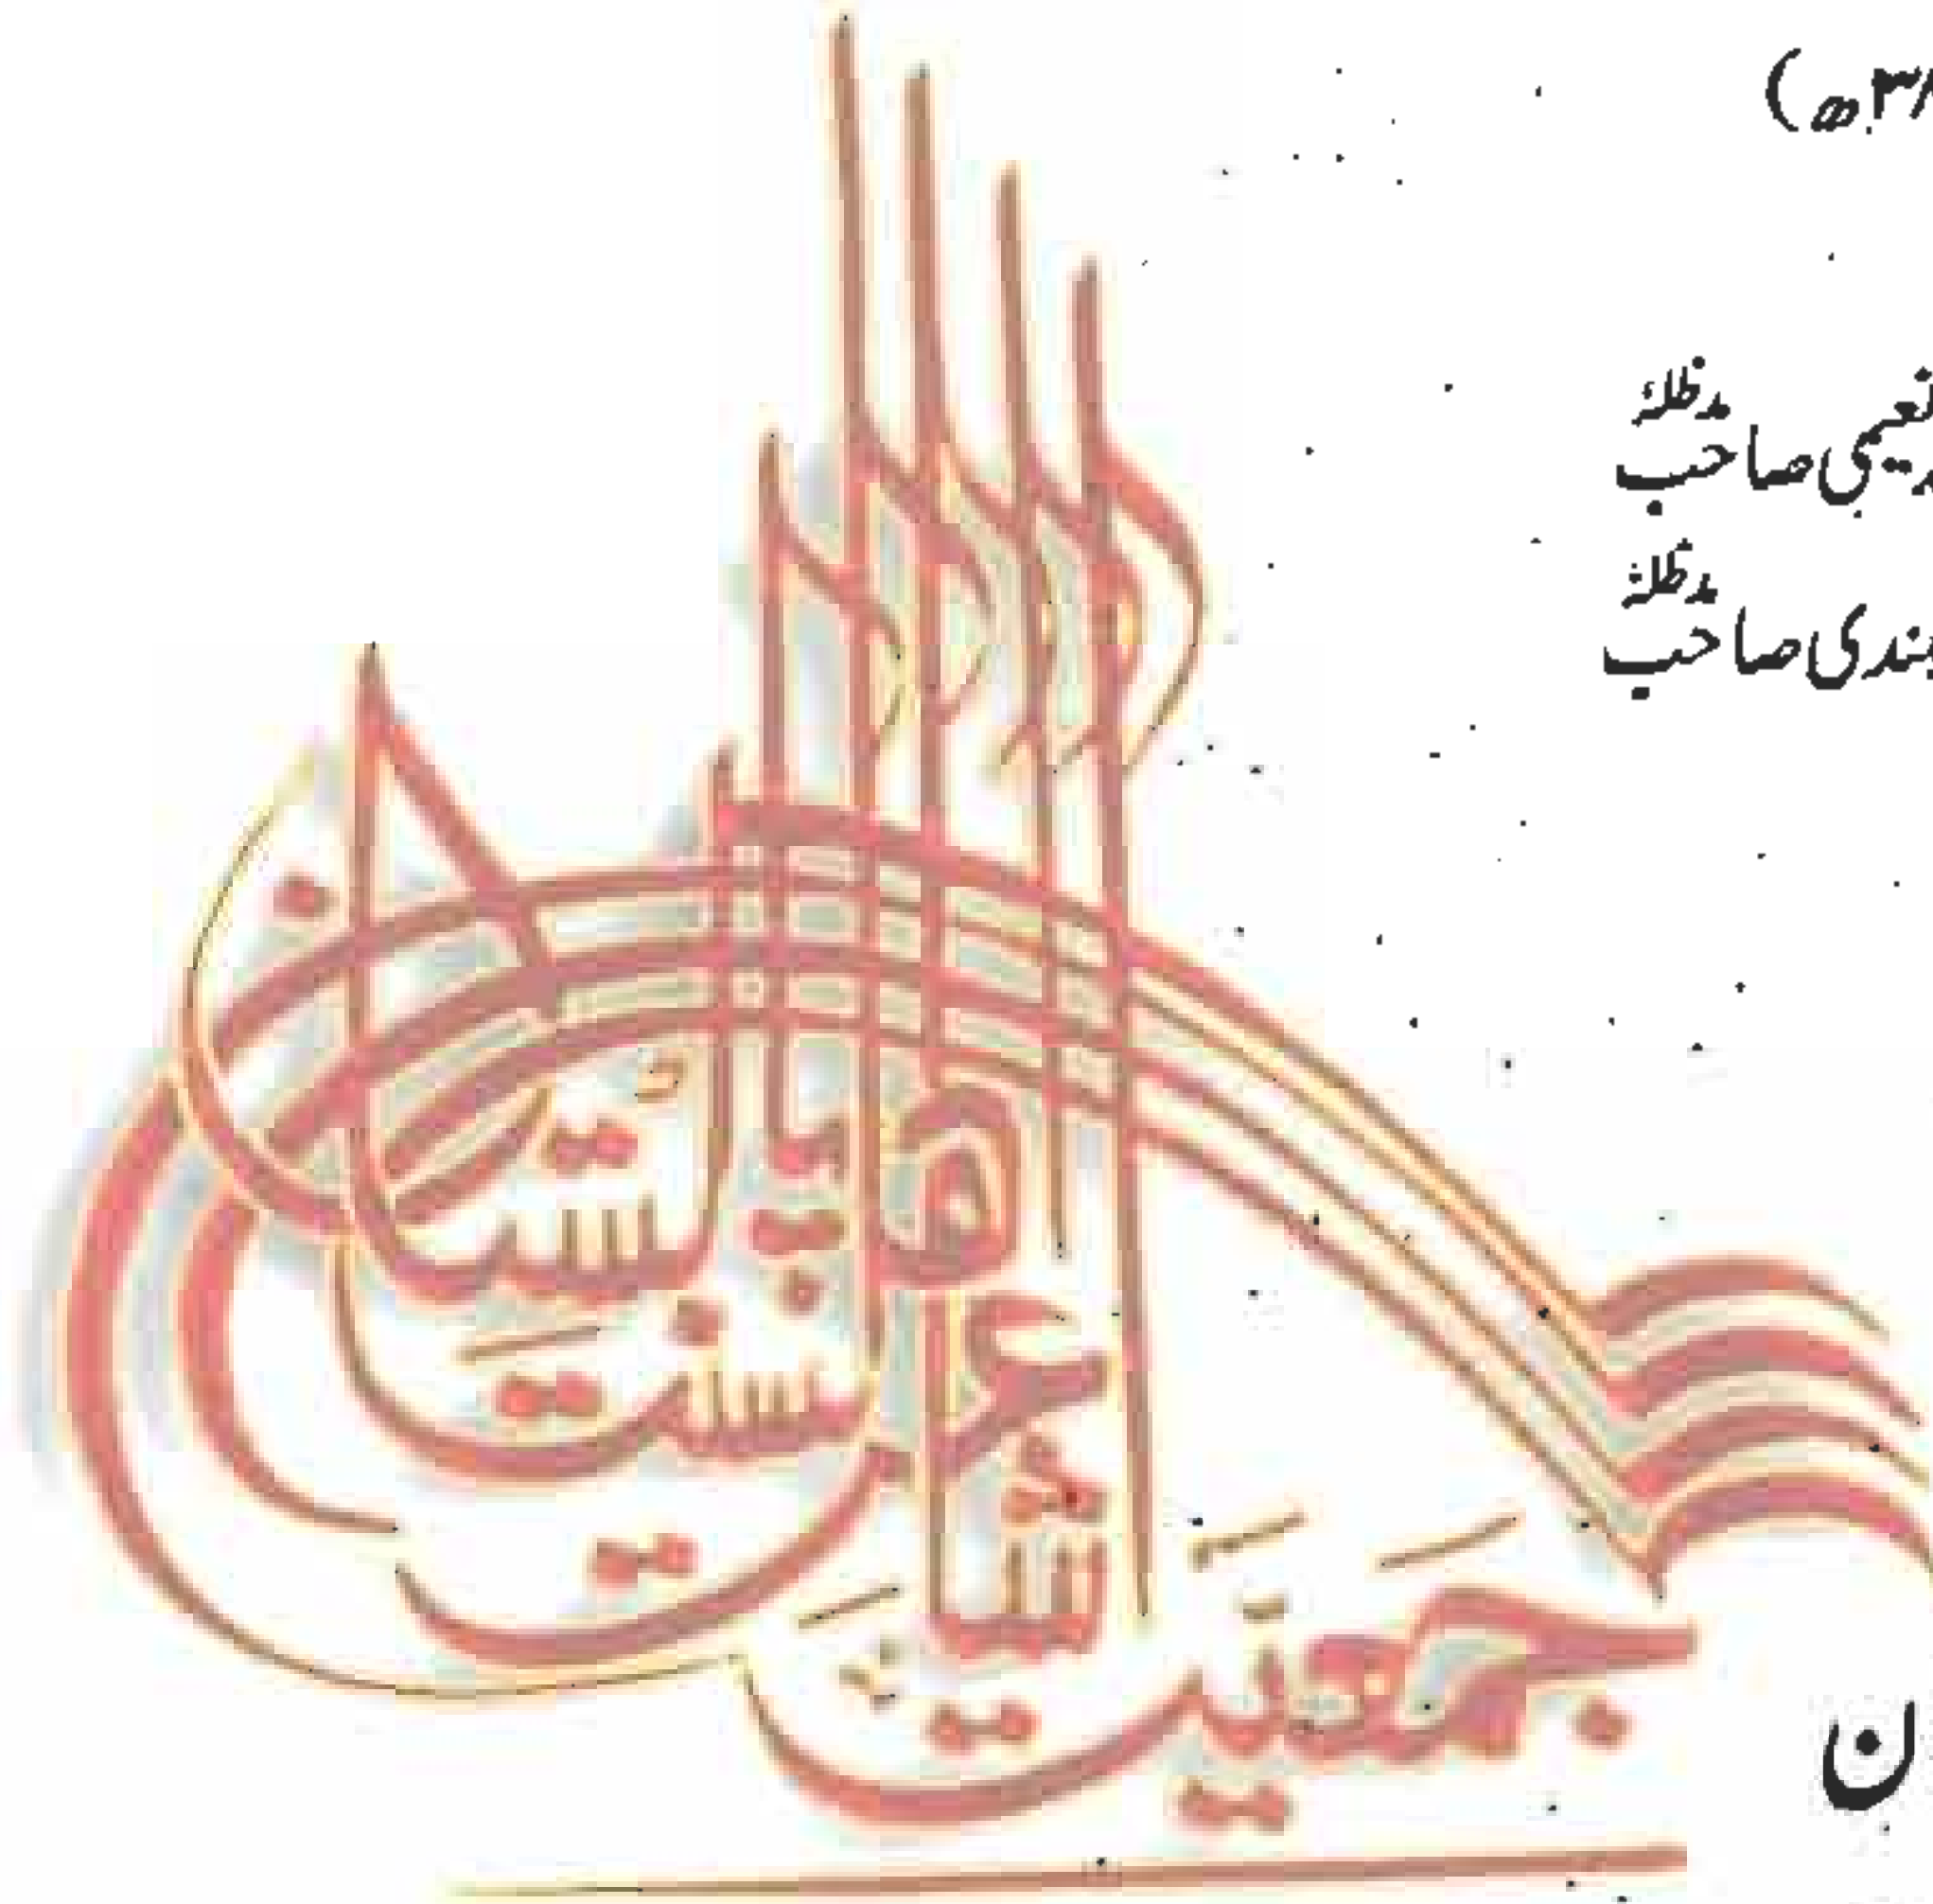 ۳۸ھ)
نعیمی صاحب مدظلہٗ
بندی صاحب مدظلہٗ
جمعیت اشاعت اہلسنت پاکستان
ن